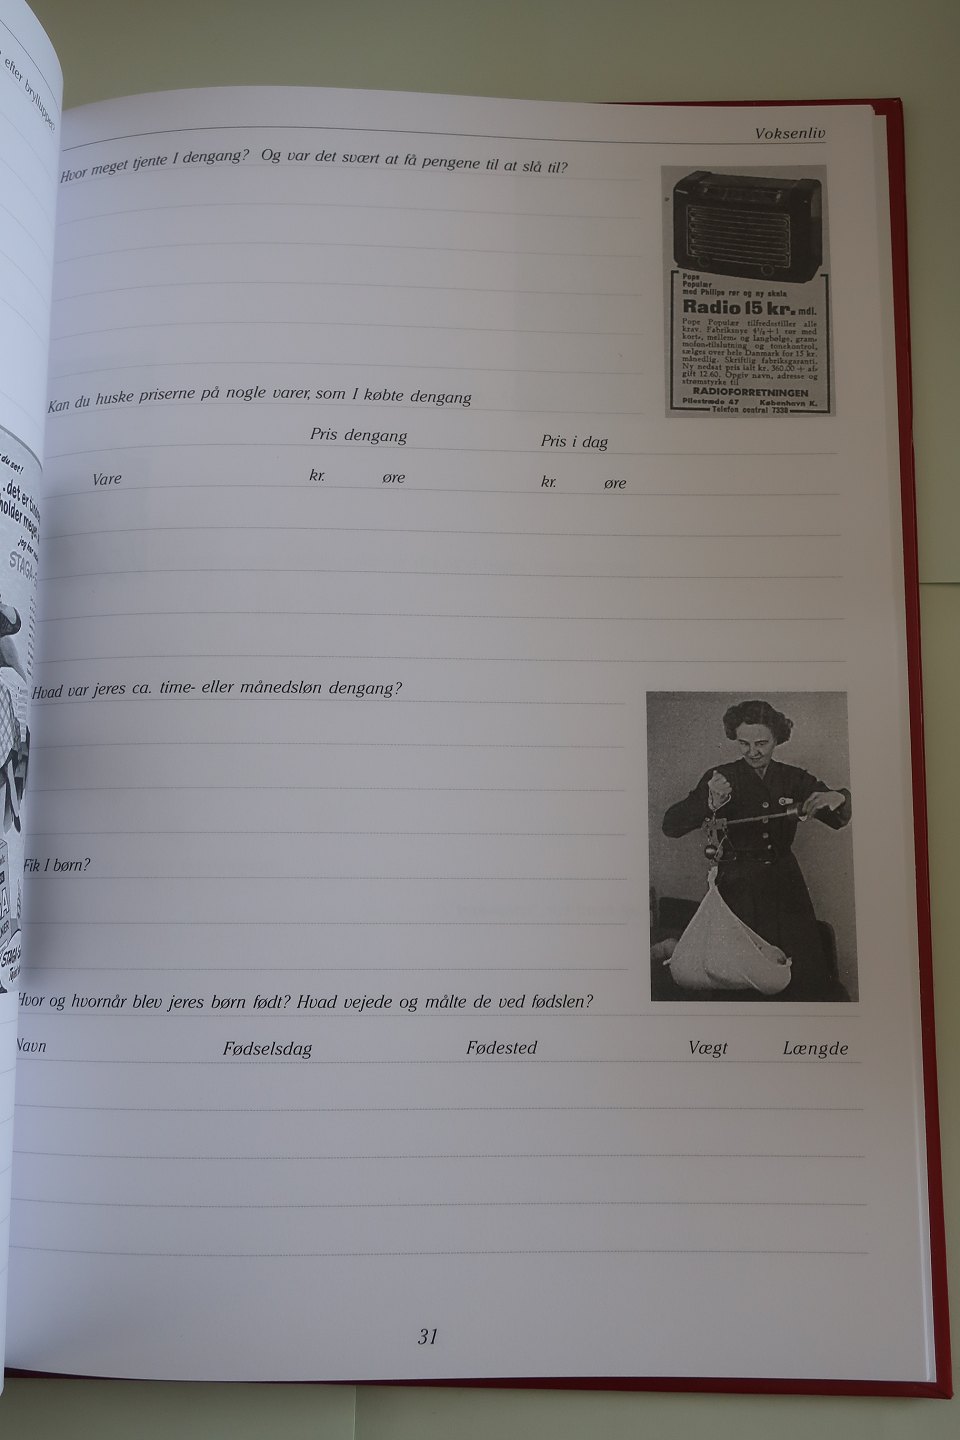 efter brylluppet?
Voksenliv
Hvor meget tjente I dengang? Og var det svært at få pengene til at slå til?
Pope
Populær
med Philips rør og ny skala
Radio 15 kr. mdl.
Pope Populær tilfredsstiller alle
krav. Fabriksnye 4½+1 rør med
kort-, mellem- og langbølge, gram-
mofon-tilslutning og tonekontrol,
sælges over hele Danmark for 15 kr.
månedlig. Skriftlig fabriksgaranti.
Ny nedsat pris ialt kr. 360.00 + af-
gift 12.60. Opgiv navn, adresse og
strømstyrke til
RADIOFORRETNINGEN
Pilestræde 47 København K.
Telefon central 7338
Kan du huske priserne på nogle varer, som I købte dengang
Pris dengang Pris i dag
Vare kr. øre kr. øre
du set!
det er
holder meget
STAGA-
Hvad var jeres ca. time- eller månedsløn dengang?
Fik I børn?
Hvor og hvornår blev jeres børn født? Hvad vejede og målte de ved fødslen?
Navn Fødselsdag Fødested Vægt Længde
31